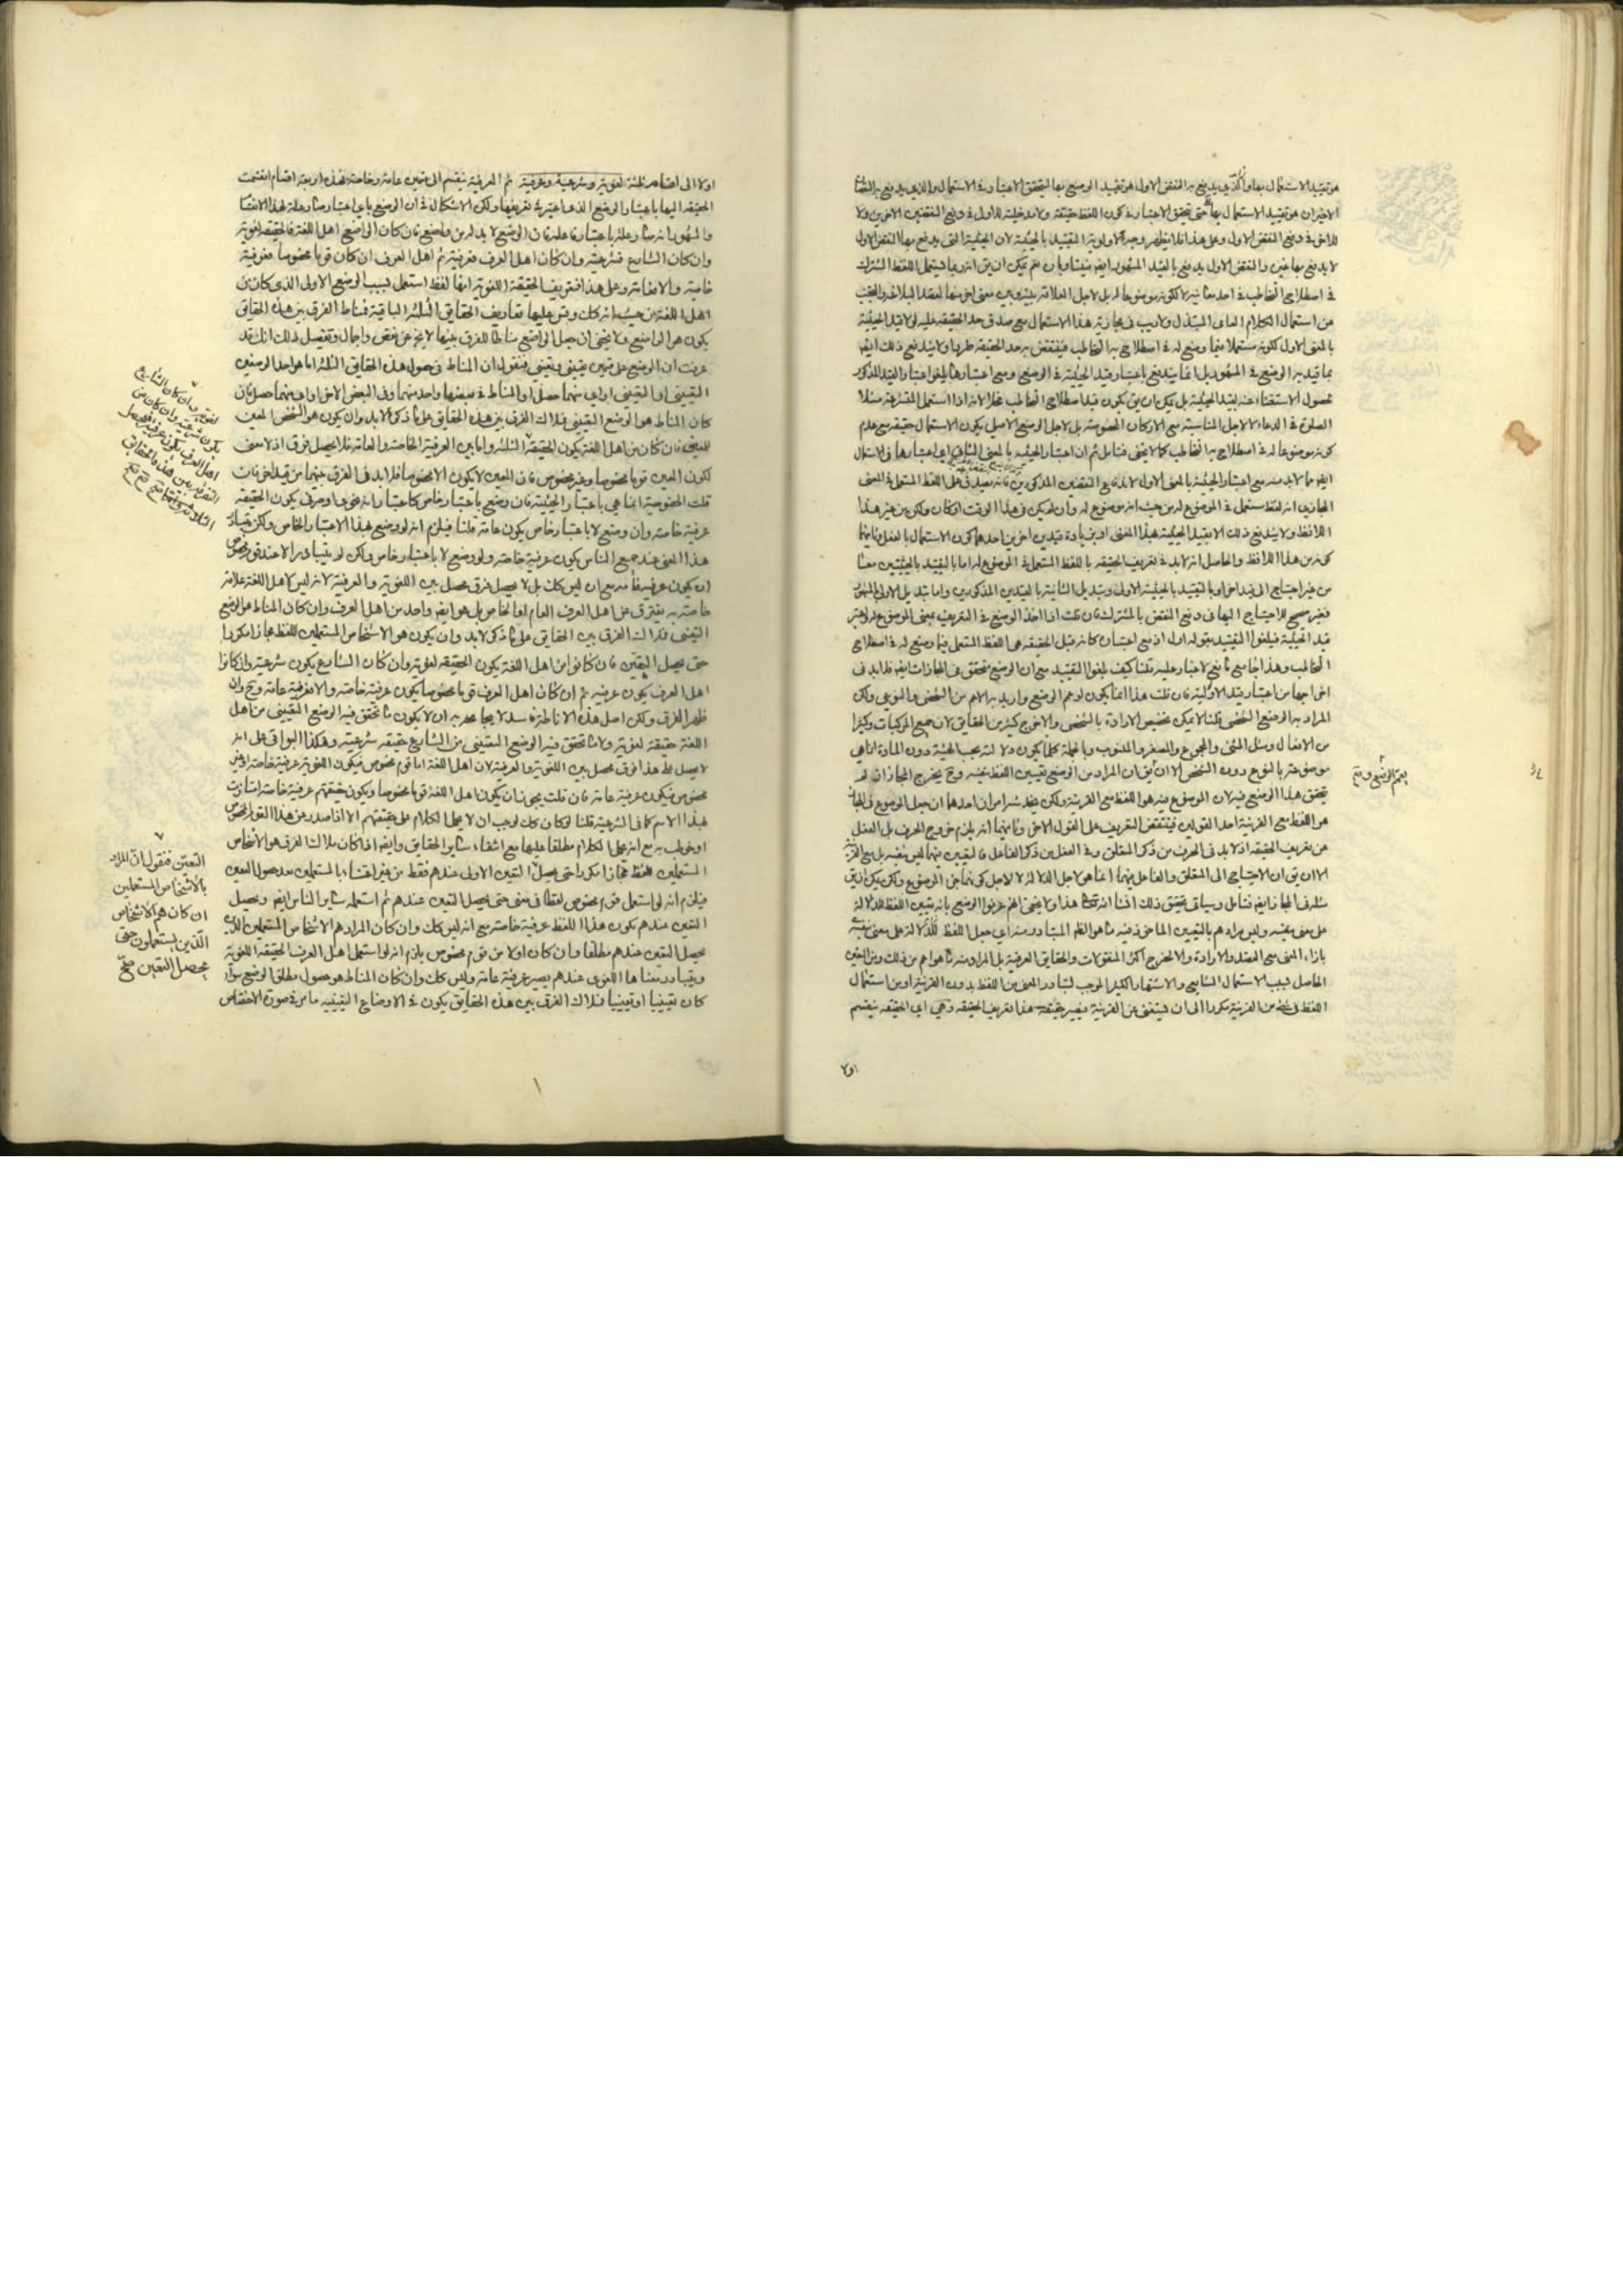 هو تقييد الاستعمال بها والذي يندفع به النقض الاول هو تقييد الوضع بها ليتحقق الاعتبار في الاستعمال والذي يندفع به النقضان
الاخيران هو تقييد الاستعمال بها حتى يتحقق الاعتبار في كون اللفظ حقيقة ولا مدخلية للاول في دفع النقضين الاخيرين ولا
للاخر في دفع النقض الاول وعلى هذا فلا يظهر وجه لاولوية التقييد بالحيثية لان الحيثية التي يندفع بها النقض الاول
لا يندفع بها غيره والنقض الاول يندفع بالقيد المشهور ايضا فيتساويان نعم يمكن ان يق انه ربما يستعمل اللفظ المشترك
في اصطلاح التخاطب في احد معانيه لا لكونه موضوعا له بل لاجل العلاقة بينه وبين معنى اخر منها لقصد البلاغة والتجنب
من استعمال الكلام العامي المبتذل ولا ريب في مجازية هذا الاستعمال مع صدق حد الحقيقة عليه لو لا قيد الحيثية
بالمعنى الاول لكونه مستعملا فيما وضع له في اصطلاح به التخاطب فينتقض به حد الحقيقة طردا ولا يندفع ذلك ايضا
بما قيد به الوضع في المشهور بل انما يندفع باعتبار قيد الحيثية في الوضع ومع اعتبارها يلغوا اعتبار القيد المذكور
لحصول الاستغناء عنه بقيد الحيثية بل يمكن ان يق يكون قيد اصطلاح التخاطب مخلا لانه اذا استعمل المتشرعة مثلا
الصلوة في الدعاء لا لاجل المناسبة مع الاركان المخصوصة بل لاجل الوضع الاصلي يكون الاستعمال حقيقة مع عدم
كونه موضوعا له في اصطلاح به التخاطب كما لا يخفى فتامل ثم ان اعتبار الحيثية بالمعنى الثاني اي اعتبارها في الاستعمال
ايضا مما لا بد منه مع اعتبار الحيثية بالمعنى الاول لاندفاع النقضين المذكورين
كونه من هذا اللافظ والحاصل انه لا بد في تعريف الحقيقة باللفظ المستعمل في الموضوع له اما بالتقييد بالحيثيتين معا
من غير احتياج الى قيد اخر او بالتقييد بالحيثية الاولى وتبديل الثانية بالقيدين المذكورين واما تبديل الاولى بالمشهور
فغير صحيح للاحتياج اليها في دفع النقض بالمشترك فان قلت اذا اخذ الوضع في التعريف بمعنى الموضوع له واعتبر
قيد الحيثية فيلغوا التقييد بقوله اولا اذ مع اعتباره كانه قيل الحقيقة هي اللفظ المستعمل فيما وضع له في اصطلاح
التخاطب وهذا جامع مانع لا غبار عليه قلنا كيف يلغوا التقييد مع ان الوضع متحقق في المجازات ايضا فلا بد في
اخراجها من اعتبار قيد الاولية فان قلت هذا انما يكون لو عم الوضع واريد به الاعم من الشخصي والنوعي ولكن
المراد به الوضع الشخصي قلنا لا يمكن تخصيص الارادة بالشخصي والاخرج كثير من الحقايق لان جميع المركبات وكثيرا
من الافعال ومثل المثنى والمجموع والمصغر والمنسوب وبالجملة كلما يكون دلالته بحسب الهيئة دون المادة انما هي
موضوعة بالنوع دون الشخص الا ان يق ان المراد من الوضع تعيين اللفظ بنفسه وح يخرج المجازات لعدم
تحقق هذا الوضع فيه لان الموضوع فيه هو اللفظ مع القرينة
هو اللفظ مع القرينة احد القولين فينتقض التعريف على القول الاخر وثانيهما انه يلزم خروج الحرف بل الفعل
عن تعريف الحقيقة اذ لا بد في الحرف من ذكر المتعلق وفي الفعل من ذكر الفاعل فالتعيين فيهما ليس بنفسه بل مع القرينة
الا ان يق ان الاحتياج الى المتعلق والفاعل فيهما انما هو لاجل الدلالة لا لاجل كونهما جزء الموضوع ولكن يمكن ان يق
مثله في المجاز ايضا فتامل وسياتي تحقيق ذلك انشا الله تعالى هذا ولا يخفى انهم عرفوا الوضع بانه تعيين اللفظ للدلالة
على معنى بنفسه وليس مرادهم بالتعيين الماخوذ فيه ما هو الظاهر المتبادر منه اي جعل اللفظ للدلالة على معنى بنفسه
بازاء المعنى مع القصد والارادة والا لخرج اكثر المنقولات والحقايق العرفية بل المراد منه ما هو اعم من ذلك ومن التعين
الحاصل بسبب الاستعمال الشايع والاشتهار الكثير الموجب لتبادر المعنى من اللفظ بدون القرينة او من استعمال
اللفظ في شيء من القرينة مكررا الى ان يستغنى عن القرينة فيصير حقيقة هذا تعريف الحقيقة وهي اي الحقيقة ينقسم
اولا
اولا الى اقسام ثلثة لغوية وشرعية وعرفية ثم العرفية ينقسم الى قسمين عامة وخاصة فهذه اربعة اقسام انقسمت
الحقيقة اليها باعتبار الوضع الذي اعتبر في تعريفها ولكن الاشكال في ان الوضع باي اعتبار صار علة لهذا الانقسام
والمشهور انه صار علة باعتبار فاعله فان الوضع لا بد له من واضع فان كان الواضع اهل اللغة فالحقيقة لغوية
وان كان الشارع فشرعية وان كان اهل العرف فعرفية ثم اهل العرف ان كان قوما مخصوصا فعرفية
خاصة والا فعامة وعلى هذا فتعريف الحقيقة اللغوية انها لفظ استعمل بسبب الوضع الاولى الذي كان من
اهل اللغة من حيث انه كك وقس عليها تعاريف الحقايق الثلثة الباقية فمناط الفرق بين هذه الحقايق
يكون هو الواضع ولا يخفى ان جعل الواضع مناطا للفرق بينها لا يخ عن نقص واجمال وتفصيل ذلك انك قد
عرفت ان الوضع على قسمين تعييني وتعيني فنقول ان المناط في حصول هذه الحقايق الثلثة اما هو احد الوضعين
التعييني او التعيني او اي منهما حصل او المناط في بعضها واحد منهما وفي البعض الاخر اي منهما حصل فان
كان المناط هو الوضع التعييني فملاك الفرق بين هذه الحقايق على ما ذكر لا بد وان يكون هو الشخص المعين
للتعيين فان كان من اهل اللغة يكون الحقيقة الثلثة واما بين العرفية الخاصة والعامة فلا يحصل فرق اذ لا معنى
لكون المعين قوما مخصوصا وغير مخصوص فان المعين لا يكون الا مخصوصا فلا بد في الفرق بينهما من قيد اخر فان
قلت الخصوصية انما هي باعتبار الحيثية فان وضع باعتبار خاص كاعتبار انه نحوي او صرفي يكون الحقيقة
عرفية خاصة وان وضع لا باعتبار خاص يكون عامة قلنا فيلزم انه لو وضع بهذا الاعتبار الخاص ولكن تبادر
هذا المعنى عند جميع الناس يكون عرفية خاصة ولو وضع لا باعتبار خاص ولكن لم يتبادر الا عند قوم مخصوص
ان يكون عرفية عامة مع ان ليس كك بل لا يحصل فرق محصل بين اللغوية والعرفية لانه ليس لاهل اللغة علامة
خاصة به يفترق عن اهل العرف العام او الخاص بل هو ايضا واحد من اهل العرف وان كان المناط هو الوضع
التعيني فملاك الفرق بين الحقايق على ما ذكر لا بد وان يكون هو الاشخاص المستعملين للفظ مجازا مكررا
حتى يحصل التعين فان كانوا من اهل اللغة يكون الحقيقة لغوية وان كان الشارع يكون شرعية وان كانوا
اهل العرف يكون عرفية ثم ان كان اهل العرف قوما مخصوصا يكون عرفية خاصة والا فعرفية عامة وح وان
ظهر الفرق ولكن اصل هذه الاناطة
اللغة حقيقة لغوية ولا ما تحقق فيه الوضع التعييني من الشارع حقيقة شرعية وهكذا البواقي على انه
لا يحصل على هذا فرق محصل بين اللغوية والعرفية لان اهل اللغة اما قوم مخصوص فيكون اللغوية عرفية خاصة او غير
مخصوص فيكون عرفية عامة فان قلت يجوز ان يكون اهل اللغة قوما مخصوصا ويكون حقيقتهم عرفية خاصة امتازت
بهذا الاسم كما في الشرعية قلنا لو كان كك لوجب ان لا يحمل الكلام على حقيقتهم الا اذا صدر عن هذا القوم المخصوص
او خوطب به مع انه يحمل الكلام مطلقا عليها مع انتفاء ساير الحقايق وايضا اذا كان ملاك الفرق هو الاشخاص
المستعملين للفظ مجازا مكررا حتى يحصل التعين الاولى عندهم فقط من غير اعتناء بالمستعملين بعد حصول التعين
فيلزم انه لو استعمل قوم مخصوص لفظا في معنى حتى يحصل التعين عندهم ثم استعمله ساير الناس ايضا ويحصل
التعين عندهم يكون هذا اللفظ عرفية خاصة مع انه ليس كك وان كان المراد هم الاشخاص المستعملين الذين
يحصل التعين عندهم مطلقا وان كان اولا من قوم مخصوص يلزم انه لو استعمل اهل العرف الحقيقة اللغوية
ويتبادر معناها اللغوي عندهم يصير عرفية عامة وليس كك وان كان المناط هو حصول مطلق الوضع سواء
كان تعيينيا او تعينيا فملاك الفرق بين هذه الحقايق يكون في الاوضاع التعيينية ما مر في صورة الاختصاص
لغوية وان كان الشارع
يكون شرعية وان كان من
اهل العرف يكون عرفية فيحصل
بين هذه الحقايق
الثلاثة
التعين فنقول ان المراد
بالاشخاص المستعملين
ان كان هم الاشخاص
الذين يستعملون حتى
يحصل التعين صح